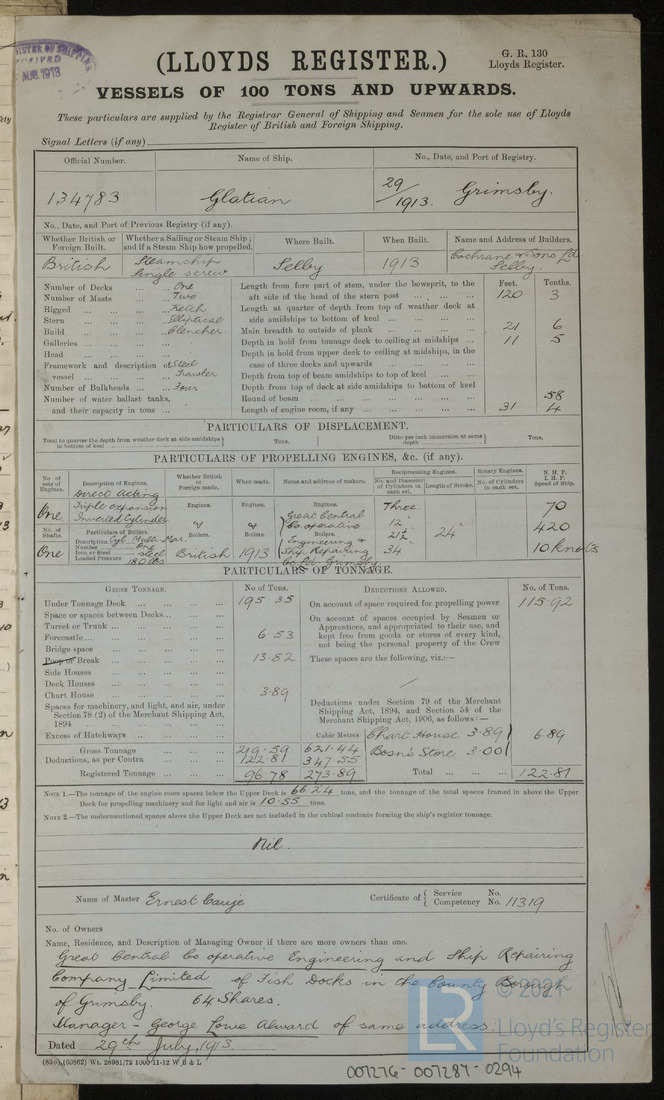 AUG 1913
(LLOYDS REGISTER.)
G. R. 130
Lloyds Register.
VESSELS OF 100 TONS AND UPWARDS.
These particulars are supplied by the Registrar General of Shipping and Seamen for the sole use of Lloyds
Register of British and Foreign Shipping.
Signal Letters (if any)
Official Number. Name of Ship. No., Date, and Port of Registry.
134783 Glatian 29/1913. Grimsby.
No., Date, and Port of Previous Registry (if any).
Whether British or Foreign Built. Whether a Sailing or Steam Ship; and if a Steam Ship how propelled. Where Built. When Built. Name and Address of Builders.
British Steamship Single screw Selby 1913 Cochrane & Sons Ld. Selby.
Number of Decks ... One
Number of Masts ... Two
Rigged ... Ketch
Stern ... Elliptical
Build ... Clencher
Galleries ...
Head ...
Framework and description of vessel ... Steel Trawler
Number of Bulkheads ... Four
Number of water ballast tanks,
and their capacity in tons ...
Feet. Tenths.
Length from fore part of stem, under the bowsprit, to the
aft side of the head of the stern post ... 120 3
Length at quarter of depth from top of weather deck at
side amidships to bottom of keel ...
Main breadth to outside of plank ... 21 6
Depth in hold from tonnage deck to ceiling at midships ... 11 5
Depth in hold from upper deck to ceiling at midships, in the
case of three decks and upwards ...
Depth from top of beam amidships to top of keel ...
Depth from top of deck at side amidships to bottom of keel
Round of beam ... 58
Length of engine room, if any ... 31 4
PARTICULARS OF DISPLACEMENT.
Total to quarter the depth from weather deck at side amidships to bottom of keel Tons. Ditto per inch immersion at same depth Tons.
PARTICULARS OF PROPELLING ENGINES, &c. (if any).
No. of sets of Engines. Description of Engines. Whether British or Foreign made. When made. Name and address of makers. Reciprocating Engines. Rotary Engines. N. H. P. I. H. P. Speed of Ship.
No. and Diameter of Cylinders in each set. Length of Stroke. No. of Cylinders in each set.
One Direct Acting Triple expansion Inverted Cylinder
Engines. Engines. Engines.
Great Central Co operative Engineering & Ship Repairing Co. Ld. Grimsby
Three 12" 21½ 34 24 70 420 10 Knots
No. of Shafts. Particulars of Boilers. Boilers. Boilers. Boilers.
One Description Cyl. Multi. Mar.
Number One
Iron or Steel Steel
Loaded Pressure 180 lbs
British 1913
PARTICULARS OF TONNAGE.
GROSS TONNAGE. No. of Tons. DEDUCTIONS ALLOWED. No. of Tons.
Under Tonnage Deck ... 195·35
Space or spaces between Decks...
Turret or Trunk ...
Forecastle ... 6·53
Bridge space ...
Poop or Break ... 13·82
Side Houses ...
Deck Houses ...
Chart House ... 3·89
Spaces for machinery, and light, and air, under
Section 78 (2) of the Merchant Shipping Act,
1894 ...
Excess of Hatchways ... Cubic Metres
Gross Tonnage 219·59 621·44
Deductions, as per Contra 122·81 347·55
Registered Tonnage ... 96·78 273·89
On account of space required for propelling power 115·92
On account of spaces occupied by Seamen or
Apprentices, and appropriated to their use, and
kept free from goods or stores of every kind,
not being the personal property of the Crew
These spaces are the following, viz.:—
Deductions under Section 79 of the Merchant
Shipping Act, 1894, and Section 54 of the
Merchant Shipping Act, 1906, as follows:—
Chart House 3·89
Bosn's Store 3·00 6·89
Total ... 122·81
NOTE 1.—The tonnage of the engine room spaces below the Upper Deck is 66·24 tons, and the tonnage of the total spaces framed in above the Upper
Deck for propelling machinery and for light and air is 10·55 tons.
NOTE 2.—The undermentioned spaces above the Upper Deck are not included in the cubical contents forming the ship's register tonnage.
Nil.
Name of Master Ernest Cauje Certificate of Service No. Competency No. 11319
No. of Owners
Name, Residence, and Description of Managing Owner if there are more owners than one.
Great Central Co operative Engineering and Ship Repairing
Company Limited of Fish Docks in the County Borough
of Grimsby. 64 Shares.
Manager - George Lowe Alward of same address.
Dated 29th July, 1913.
(8306) (63862) Wt. 28981/72 1000 11-12 W B & L
007276-007287-0294
LR © 2021
Lloyd's Register
Foundation